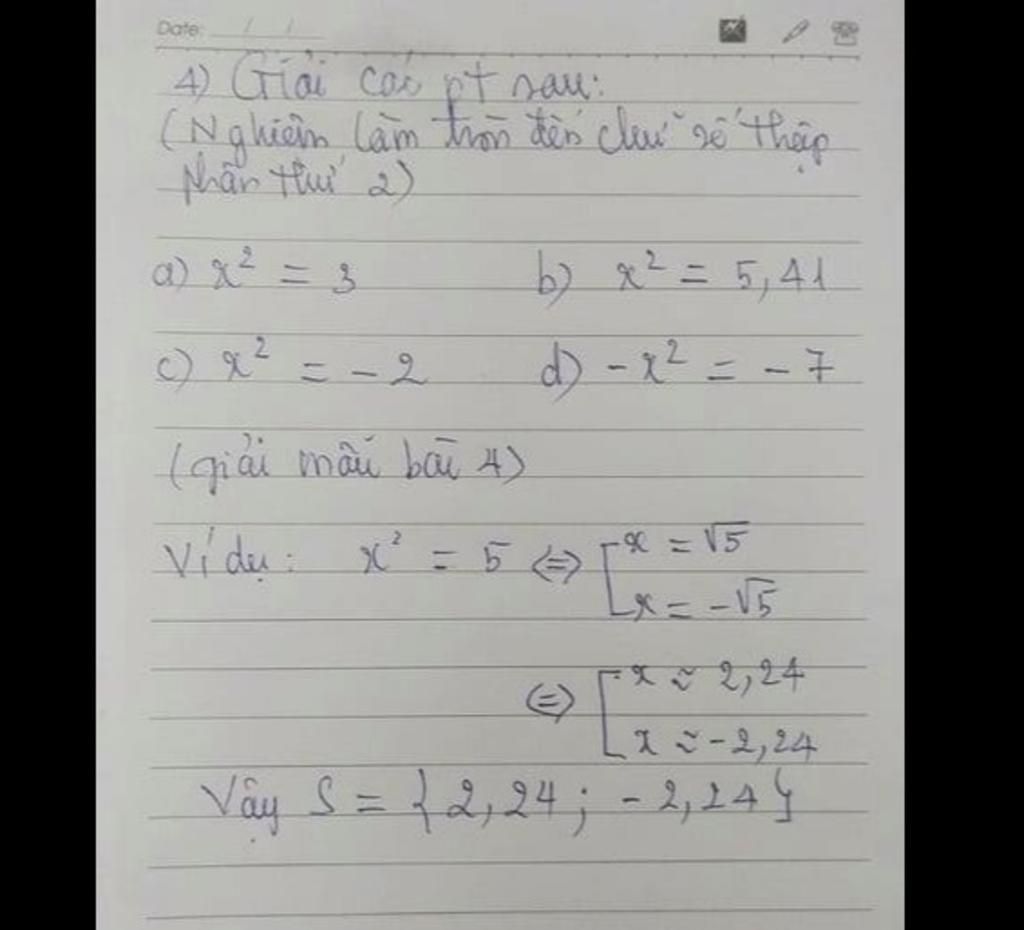 Date: / /
4) Giải các pt sau:
(Nghiệm làm tròn đến chữ số thập
phân thứ 2)
a) x² = 3 b) x² = 5,41
c) x² = -2 d) -x² = -7
(giải mẫu bài 4)
Ví dụ: x² = 5 ⇔ [ x = √5
x = -√5
⇔ [ x ≈ 2,24
x ≈ -2,24
Vậy S = {2,24; -2,24}